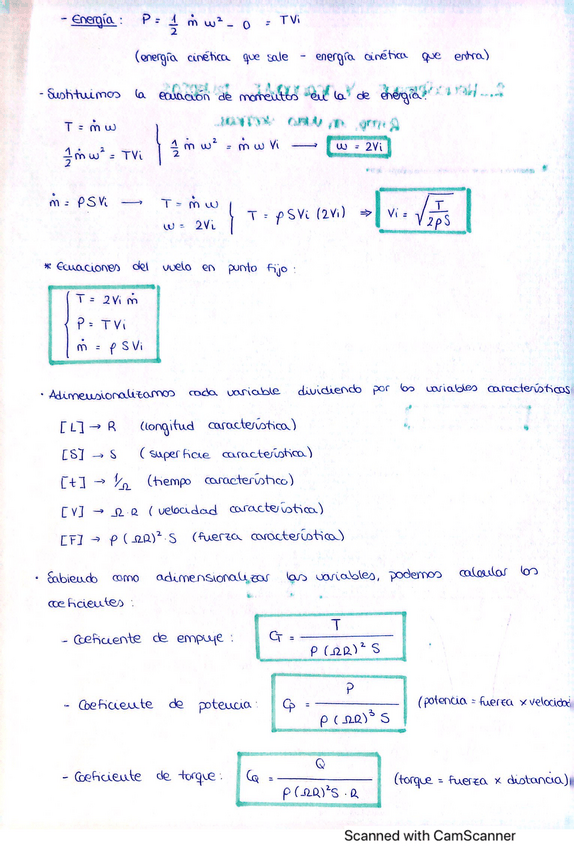 - Energía: P = 1/2 ṁ w² - 0 = TVi
(energía cinética que sale - energía cinética que entra)
- Sustituimos la ecuación de momentos en la de energía:
T = ṁ w
1/2 ṁ w² = TVi } 1/2 ṁ w² = ṁ w Vi → w = 2Vi
ṁ = ρSVi → T = ṁ w
w = 2Vi } T = ρSVi (2Vi) ⇒ Vi = √(T/2ρS)
* Ecuaciones del vuelo en punto fijo:
T = 2Vi ṁ
P = TVi
ṁ = ρSVi
· Adimensionalizamos cada variable dividiendo por las variables características
[L] → R (longitud característica)
[S] → S (superficie característica)
[t] → 1/Ω (tiempo característico)
[V] → Ω·R (velocidad característica)
[F] → ρ(ΩR)²·S (fuerza característica)
· Sabiendo como adimensionalizar las variables, podemos calcular los
coeficientes:
- Coeficiente de empuje: CT = T / ρ(ΩR)² S
- Coeficiente de potencia: Cp = P / ρ(ΩR)³ S (potencia = fuerza x velocidad
- Coeficiente de torque: CQ = Q / ρ(ΩR)²S·R (torque = fuerza x distancia)
Scanned with CamScanner